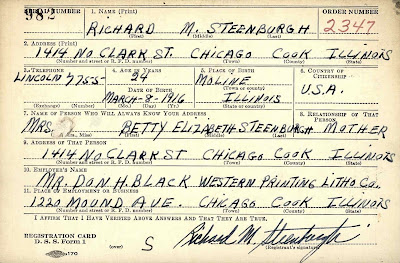 SERIAL NUMBER 1. NAME (Print) ORDER NUMBER
982 RICHARD M. STEENBURGH 2347
(First) (Middle) (Last)
2. ADDRESS (Print)
1414 NO. CLARK ST. CHICAGO COOK ILLINOIS
(Number and street or R. F. D. number) (Town) (County) (State)
3. TELEPHONE 4. AGE IN YEARS 5. PLACE OF BIRTH 6. COUNTRY OF CITIZENSHIP
LINCOLN 7755 24 MOLINE
DATE OF BIRTH (Town or county) U.S.A.
MARCH-8-1916 ILLINOIS
(Exchange) (Number) (Mo.) (Day) (Yr.) (State or country)
7. NAME OF PERSON WHO WILL ALWAYS KNOW YOUR ADDRESS 8. RELATIONSHIP OF THAT PERSON
MRS. BETTY ELIZABETH STEENBURGH MOTHER
(Mr., Mrs., Miss) (First) (Middle) (Last)
9. ADDRESS OF THAT PERSON
1414 NO CLARK ST CHICAGO COOK ILLINOIS
(Number and street or R. F. D. number) (Town) (County) (State)
10. EMPLOYER'S NAME
MR. DON. H. BLACK WESTERN PRINTING LITHO CO.
11. PLACE OF EMPLOYMENT OR BUSINESS
1220 MOUND AVE. CHICAGO COOK ILLINOIS
(Number and street or R. F. D. number) (Town) (County) (State)
I AFFIRM THAT I HAVE VERIFIED ABOVE ANSWERS AND THAT THEY ARE TRUE.
REGISTRATION CARD
D. S. S. Form 1 (over) S Richard M. Steenburgh
(Registrant's signature)